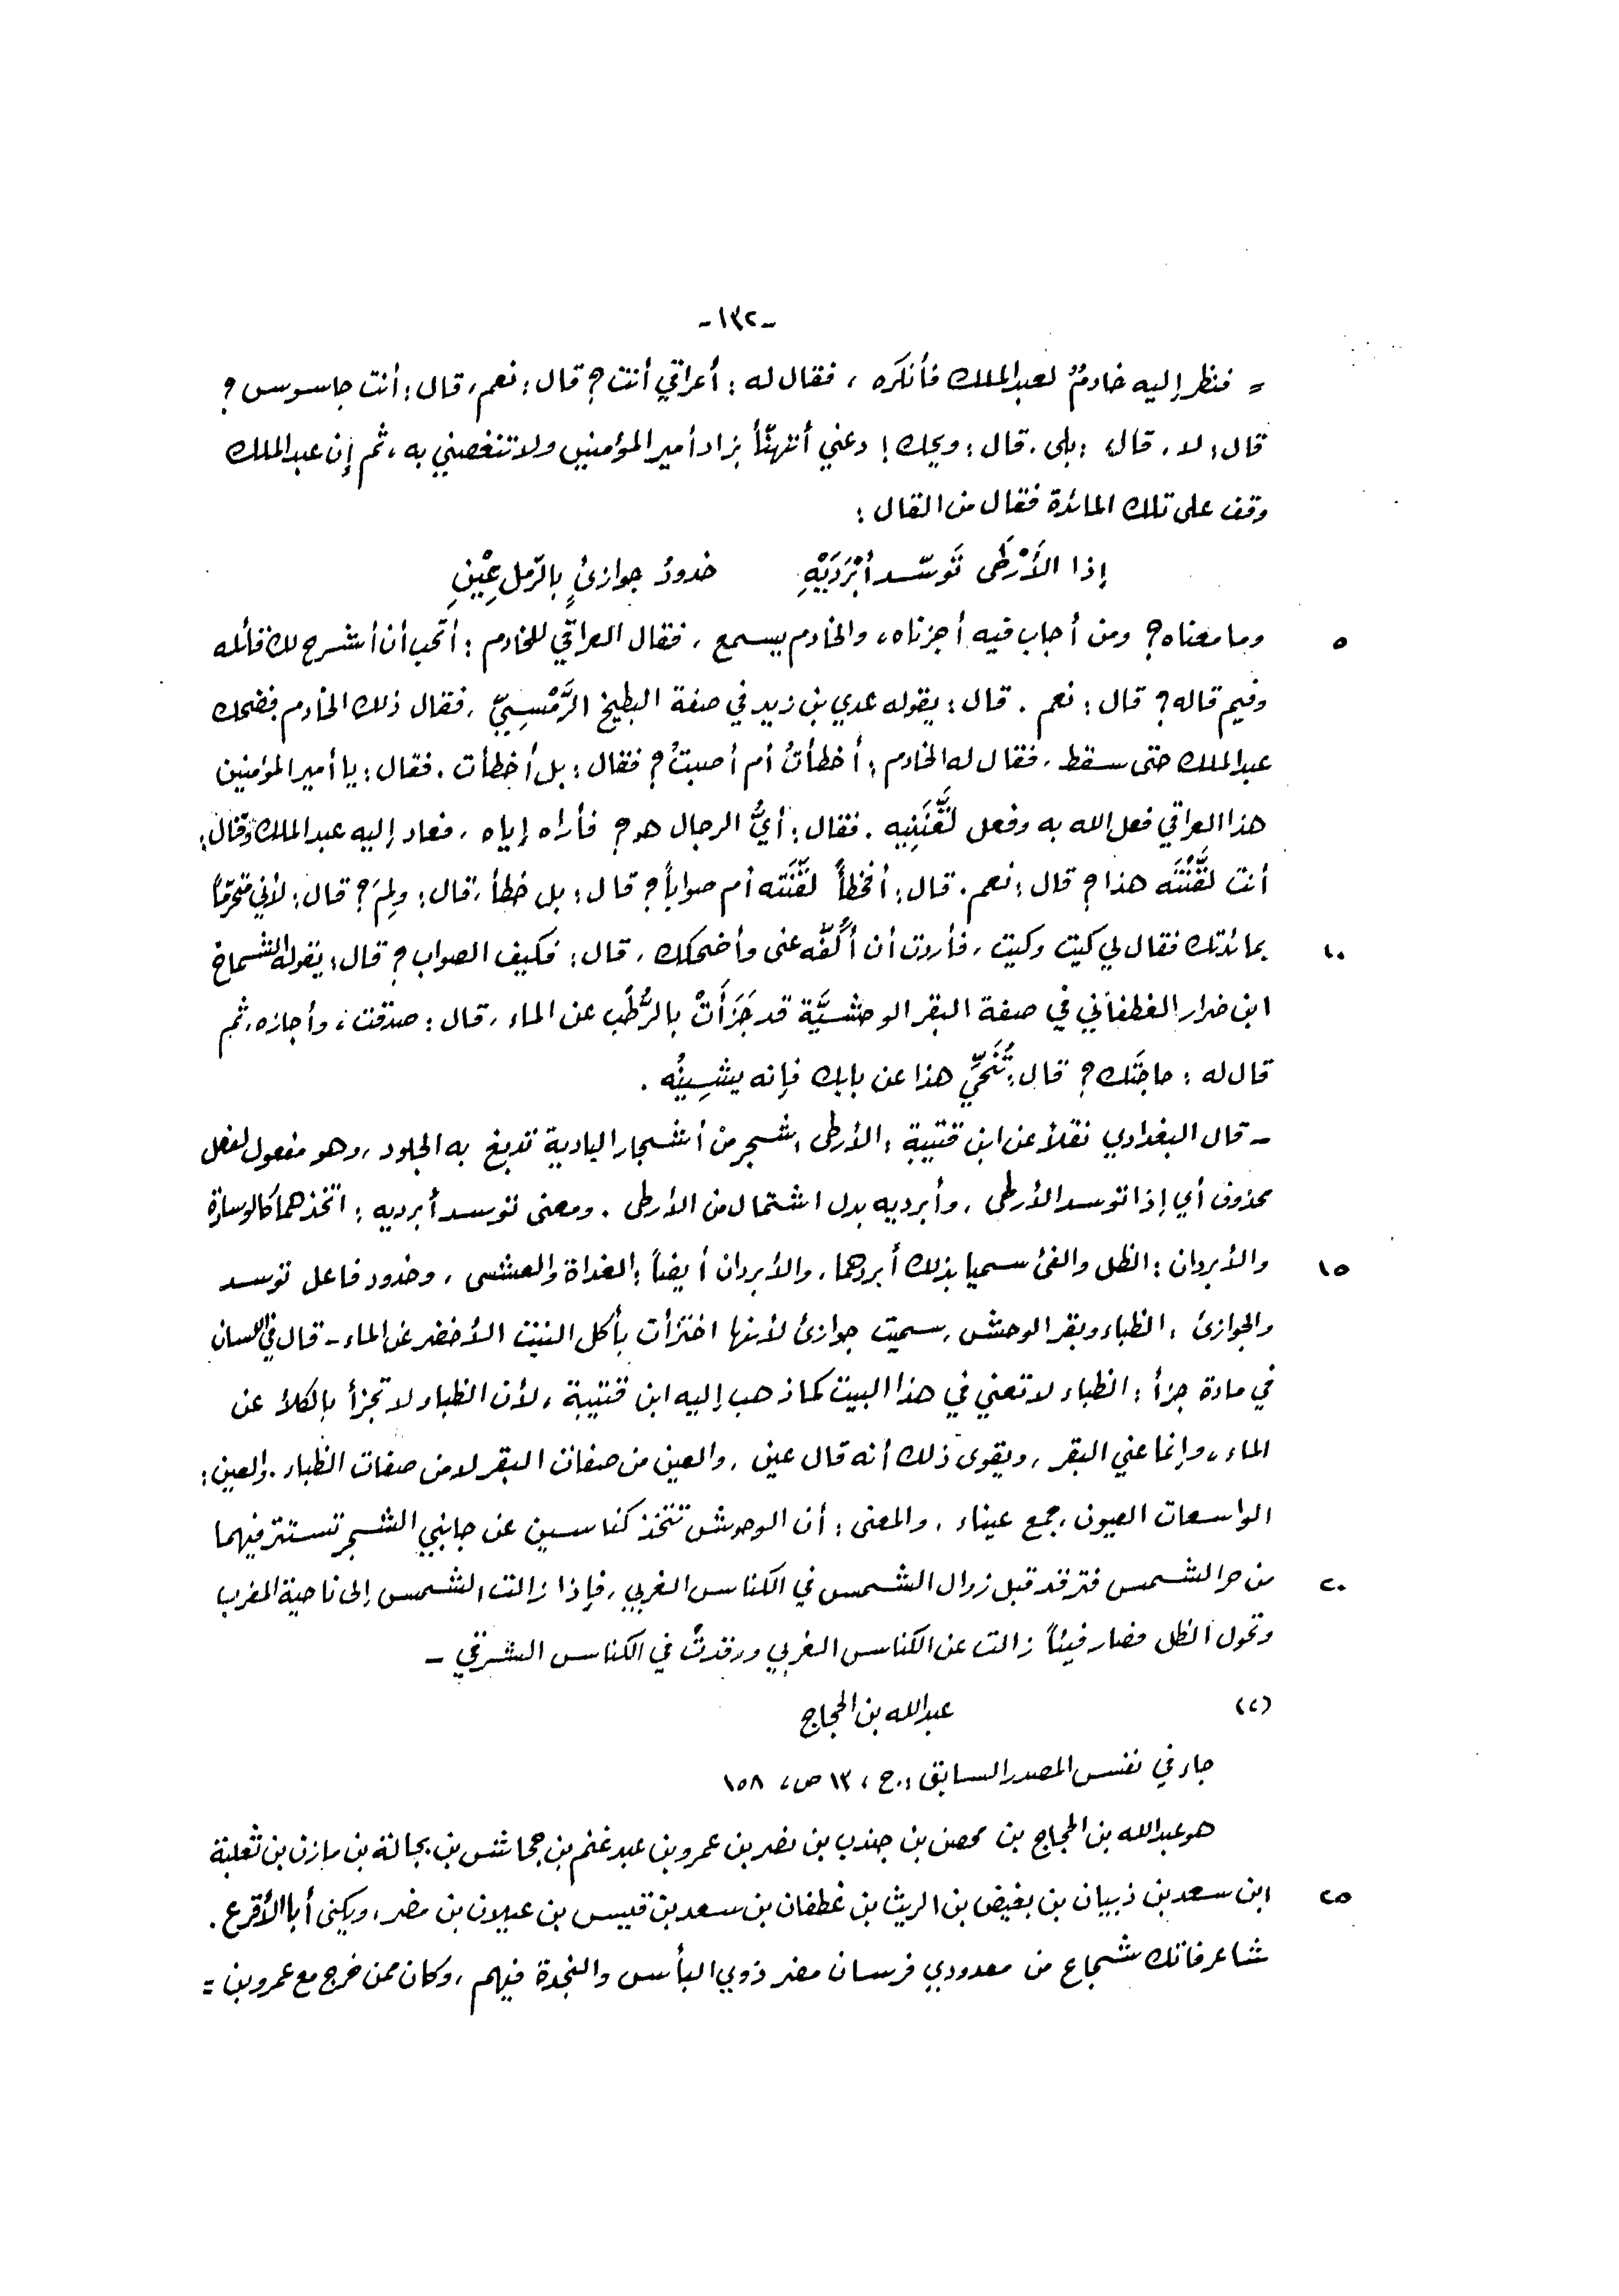 -١٣٢-
= فنظر إليه خادمٌ لعبد الملك فأنكره ، فقال له : أعراقي أنت ؟ قال : نعم ، قال : أنت جاسوس ؟
قال : لا ، قال : بلى ، قال : ويحك ! دعني أتهنّأ بزاد أمير المؤمنين ولا تنغصني به ، ثم إن عبد الملك
وقف على تلك المائدة فقال من القال :
إذا الأَرْطَى تَوسّد أبْرَدَيْهِ خدودُ جوازئٍ بالرّمل عِيْنِ
٥ وما معناه ؟ ومن أجاب فيه أجزناه ، والخادم يسمع ، فقال العراقي للخادم : أتحب أن أشرح لك قائله
وفيم قاله ؟ قال : نعم . قال : يقوله عدي بن زيد في صفة البطيخ الرَّمْسِيِّ ، فقال ذلك الخادم فضحك
عبد الملك حتى سقط ، فقال له الخادم : أخطأتُ أم أصبتُ ؟ فقال : بل أخطأت . فقال : يا أمير المؤمنين
هذا العراقي فعل الله به وفعل لَقَّنَنِيه . فقال : أيُّ الرجال هو ؟ فأراه إياه ، فعاد إليه عبد الملك وقال :
أنت لقَّنْتَه هذا ؟ قال : نعم . قال : أفخطأً لقَّنْتَه أم صواباً ؟ قال : بل خطأ ، قال : ولِمَ ؟ قال : لأني متحرّماً
١٠ بمائدتك فقال لي كيت وكيت ، فأردت أن أكُفَّه عني وأضحكك ، قال : فكيف الصواب ؟ قال : يقوله الشماخ
ابن ضرار الغطفاني في صفة البقر الوحشيَّة قد جَزَأَتْ بالرُّطْب عن الماء ، قال : صدقت ، وأجازه ، ثم
قال له : حاجَتَك ؟ قال : تُنَحِّي هذا عن بابك فإنه يشِينُه .
- قال البغدادي نقلاً عن ابن قتيبة : الأرطى : شجر من أشجار البادية تدبغ به الجلود ، وهو مفعول لفعل
محذوف أي إذا توسد الأرطى ، وأبرديه بدل اشتمال من الأرطى . ومعنى توسد أبرديه : اتخذهما كالوسادة
١٥ والأبردان : الظل والفئ سميا بذلك أبردهما ، والأبردان أيضاً : الغداة والعشى ، وخدود فاعل توسد
والجوازئ : الظباء وبقر الوحش ، سميت جوازئ لأنها اختزأت بأكل النبت الأخضر عن الماء - قال في اللسان
في مادة جزأ : الظباء لا تعني في هذا البيت كما ذهب إليه ابن قتيبة ، لأن الظباء لا تجزأ بالكلأ عن
الماء ، وإنما عني البقر ، ويقوى ذلك أنه قال عين ، والعين من صفات البقر لا من صفات الظباء . والعين :
الواسعات العيون ، جمع عيناء ، والمعنى : أن الوحوش تتخذ كناسين عن جانبي الشجر تستتر فيهما
٢٠ من حر الشمس فترقد قبل زوال الشمس في الكناس الغربي ، فإذا زالت الشمس إلى ناحية المغرب
وتحول الظل فصار فيئاً زالت عن الكناس الغربي ورقدتْ في الكناس الشرقي -
(٢) عبد الله بن الحجاج
جاء في نفس المصدر السابق : ج ، ١٣ ص ، ١٥٨
هو عبد الله بن الحجاج بن محصن بن جندب بن نصر بن عمرو بن عبد غنم بن جحاش بن بجالة بن مازن بن ثعلبة
٢٥ ابن سعد بن ذبيان بن بغيض بن الريث بن غطفان بن سعد بن قيس بن عيلان بن مضر ، ويكنى أبا الأقرع .
شاعر فاتك شجاع من معدودي فرسان مضر ذوي البأس والنجدة فيهم ، وكان ممن خرج مع عمرو بن =